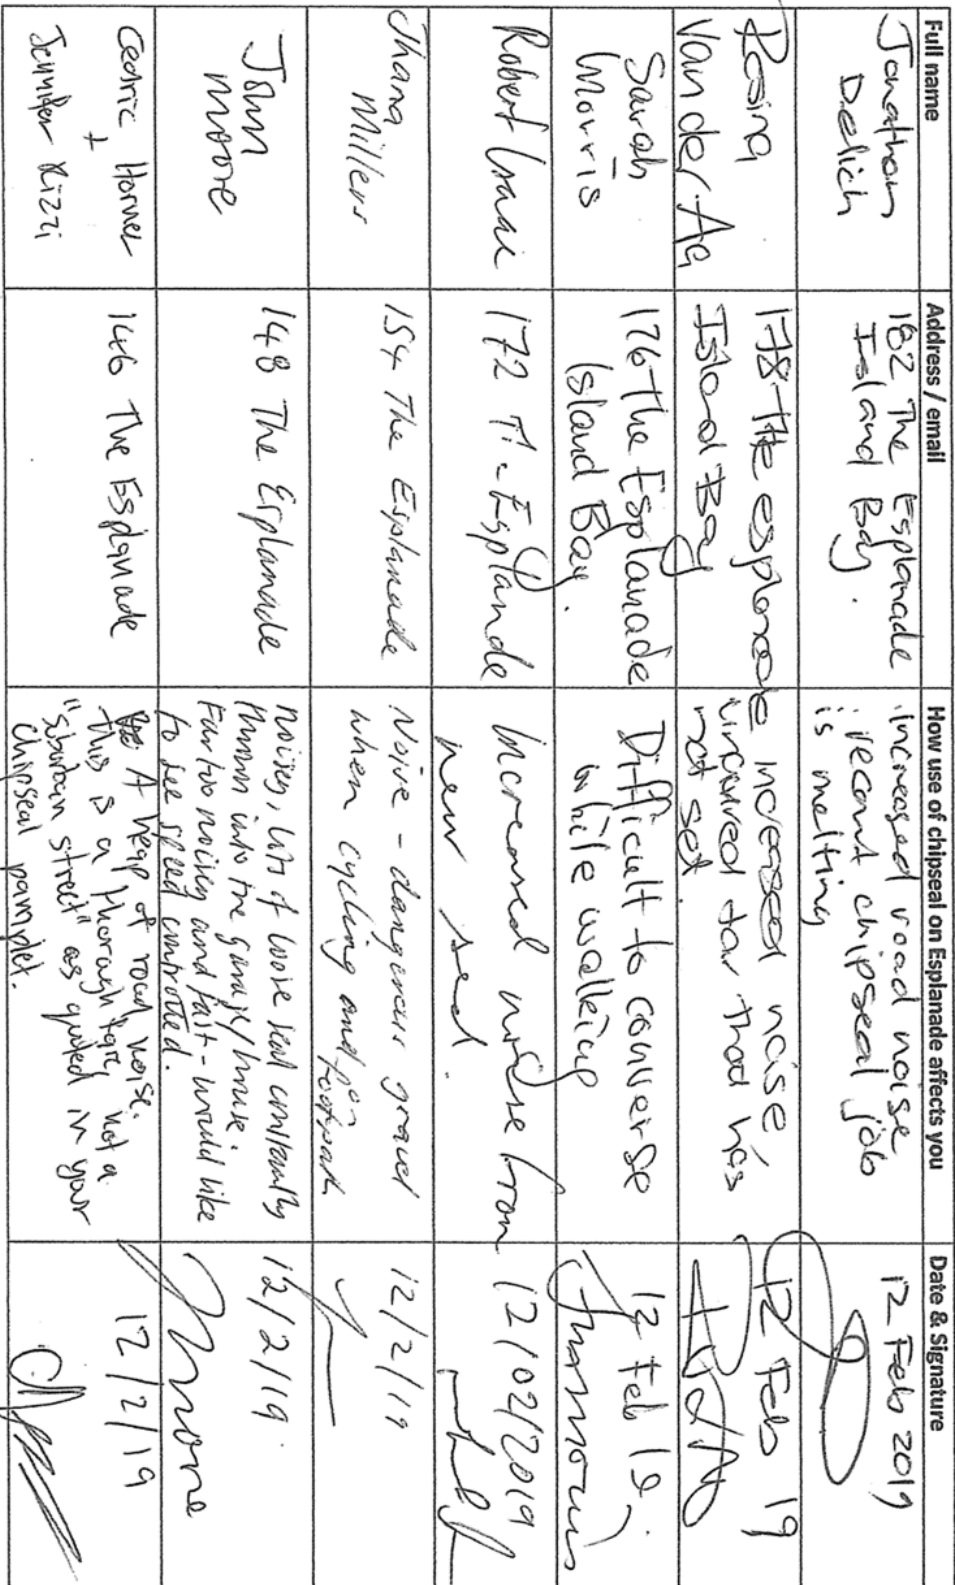 Full name
Address / email
How use of chipseal on Esplanade affects you
Date & Signature
Jonathon
Delich
182 The Esplanade
Island Bay.
increased road noise
recent chipseal job
is melting
12 Feb 2019
Rosina
Van der Aa
178 the esplanade
Island Bay
increased noise,
uncured tar that has
not set.
12 Feb 19
Sarah
Morris
176 the Esplanade
Island Bay.
Difficult to converse
while walking
12 Feb 19.
Robert
172 Th Esplande
Increased noise from
new seal.
12/02/2019
Jhana
Miller
154 The Esplanade
Noise - dangerous gravel
when cycling and on
footpath
12/2/19
John
Moore
148 The Esplanade
Noisy, lots of loose seal constantly
thrown into the garage/house.
Far too noisy and fast - would like
to see speed controlled.
12/2/19.
Moore
Cedric Horner
+
Jennifer Rizzi
146 The Esplanade
A heap of road noise.
this is a thoroughfare, not a
"suburban street" as quoted in your
chipseal pamplet.
12/2/19